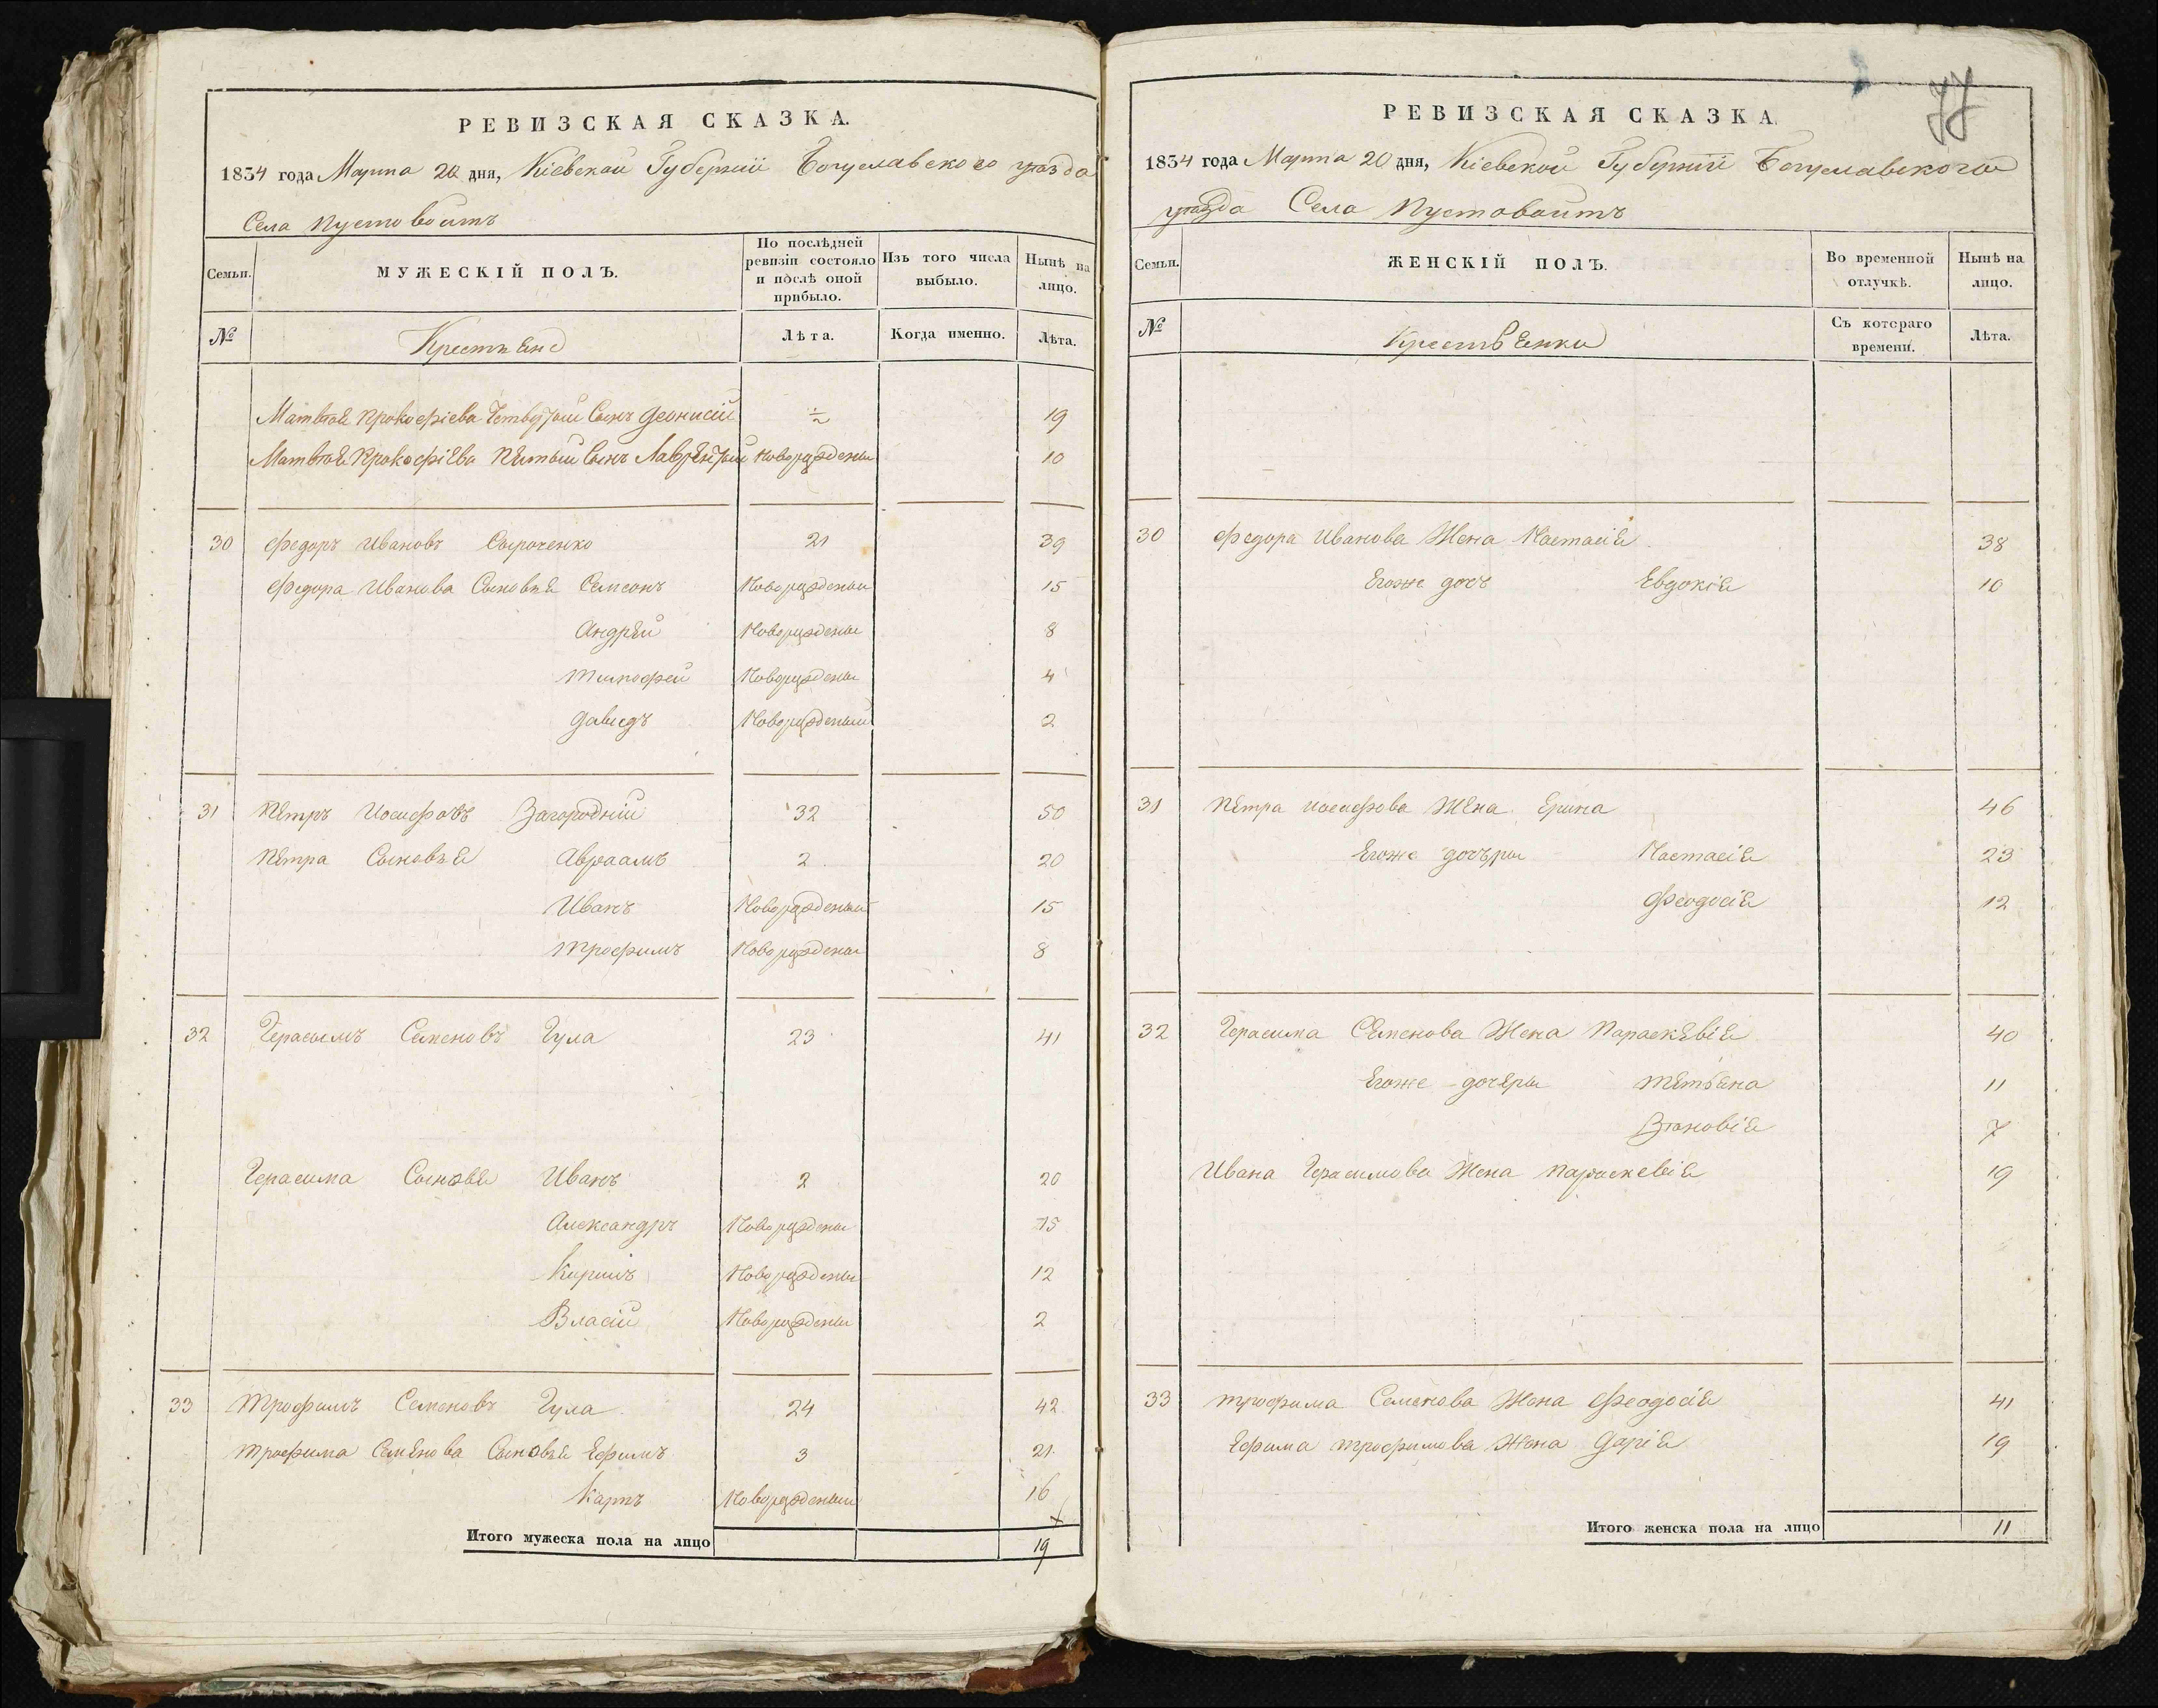 РЕВИЗСКАЯ СКАЗКА.
1834 года Марта 20 дня, Кіевской Губерніи Богуславского уѣзда
Села Пустовойтъ
Семьи. МУЖЕСКІЙ ПОЛЪ. По послѣдней ревизіи состояло и послѣ оной прибыло. Изъ того числа выбыло. Нынѣ на лицо.
№ Крестьяне Лѣта. Когда именно. Лѣта.
Матвѣя Прокофіева Четвертый Сынъ Деонисій ½ 19
Матвѣя Прокофіева Пятый Сынъ Лаврентій Новорожденый 10
30 Федоръ Ивановъ Сыроченко 21 39
Федора Иванова Сыновья Самсонъ Новорожденый 15
Андрей Новорожденый 8
Тимофей Новорожденый 4
Давидъ Новорожденый 2
31 Петръ Иосифовъ Загородній 32 50
Петра Сыновья Авраамъ 2 20
Иванъ Новорожденый 15
Трофимъ Новорожденый 8
32 Герасимъ Семеновъ Гула 23 41
Герасима Сыновья Иванъ 2 20
Александръ Новорожденый 15
Кирилъ Новорожденый 12
Власій Новорожденый 2
33 Трофимъ Семеновъ Гула 24 42
Трофима Семенова Сыновья Ефимъ 3 21
Карпъ Новорожденый 16
Итого мужеска пола на лицо 19
77
РЕВИЗСКАЯ СКАЗКА.
1834 года Марта 20 дня, Кіевской Губерніи Богуславского
уѣзда Села Пустовойтъ
Семьи. ЖЕНСКІЙ ПОЛЪ. Во временной отлучкѣ. Нынѣ на лицо.
№ Крестьянки Съ котораго времени. Лѣта.
30 Федора Иванова Жена Настасія 38
Егоже дочь Евдокія 10
31 Петра Иосифова Жена Ерина 46
Егоже дочъри Настасія 23
Феодосія 12
32 Герасима Семенова Жена Параскевія 40
Егоже дочери Тетьяна 11
Зѣновія 7
Ивана Герасимова Жена Параскевія 19
33 Трофима Семенова Жена Феодосія 41
Ефима Трофимова Жена Дарія 19
Итого женска пола на лицо 11